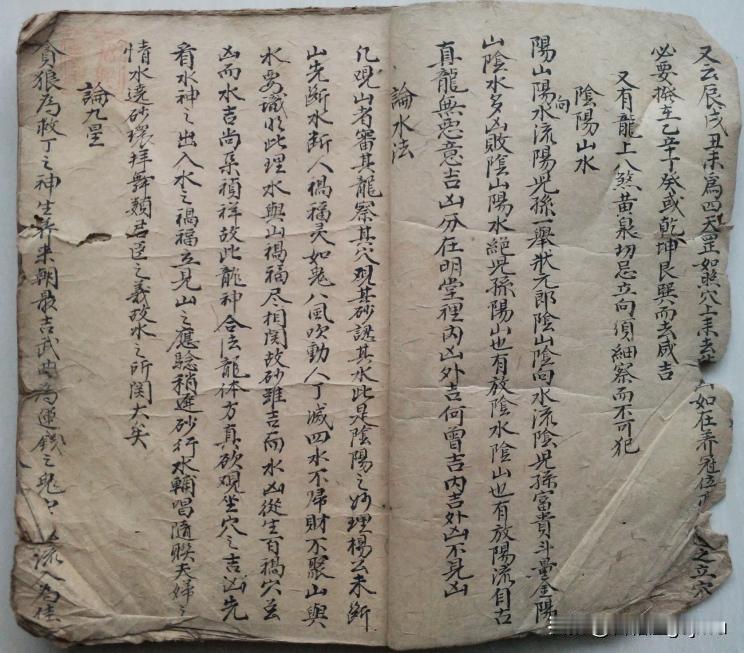 又云辰戌丑未為四天罡如照穴上來去 如在养冠位 之立穴
必要撥至乙辛丁癸或乾坤艮巽而去咸吉
又有龍上八煞黄泉切忌立向須細察而不可犯
陰陽山水
陽山陽向水流陽児孫一舉狀元郎陰山陰向水流陰児孫富貴斗量金陽
山陰水多凶敗陰山陽水絕児孫陽山也有放陰水陰山也有放陽流自古
真龍無惡意吉凶分在明堂裡內凶外吉何曾吉內吉外凶不見凶
論水法
凢观山者審其龍察其穴观其砂認其水此是陰陽之妙理楊公未断
山先断水断人禍福灵如鬼八風吹動人丁滅四水不归財不聚山與
水要識明此理水與山禍福尽相関故砂雖吉而水凶從生百禍穴Looks
凶而水吉尚集禎祥故此龍神合法龍体方真欲观坐穴之吉凶先
看水神之出入水之禍福立見山之應驗稍遲砂行水輔唱隨联夫婦之
情水遶砂環拜舞類君臣之義故水之所関大矣
論九星
貪狼為救丁之神生